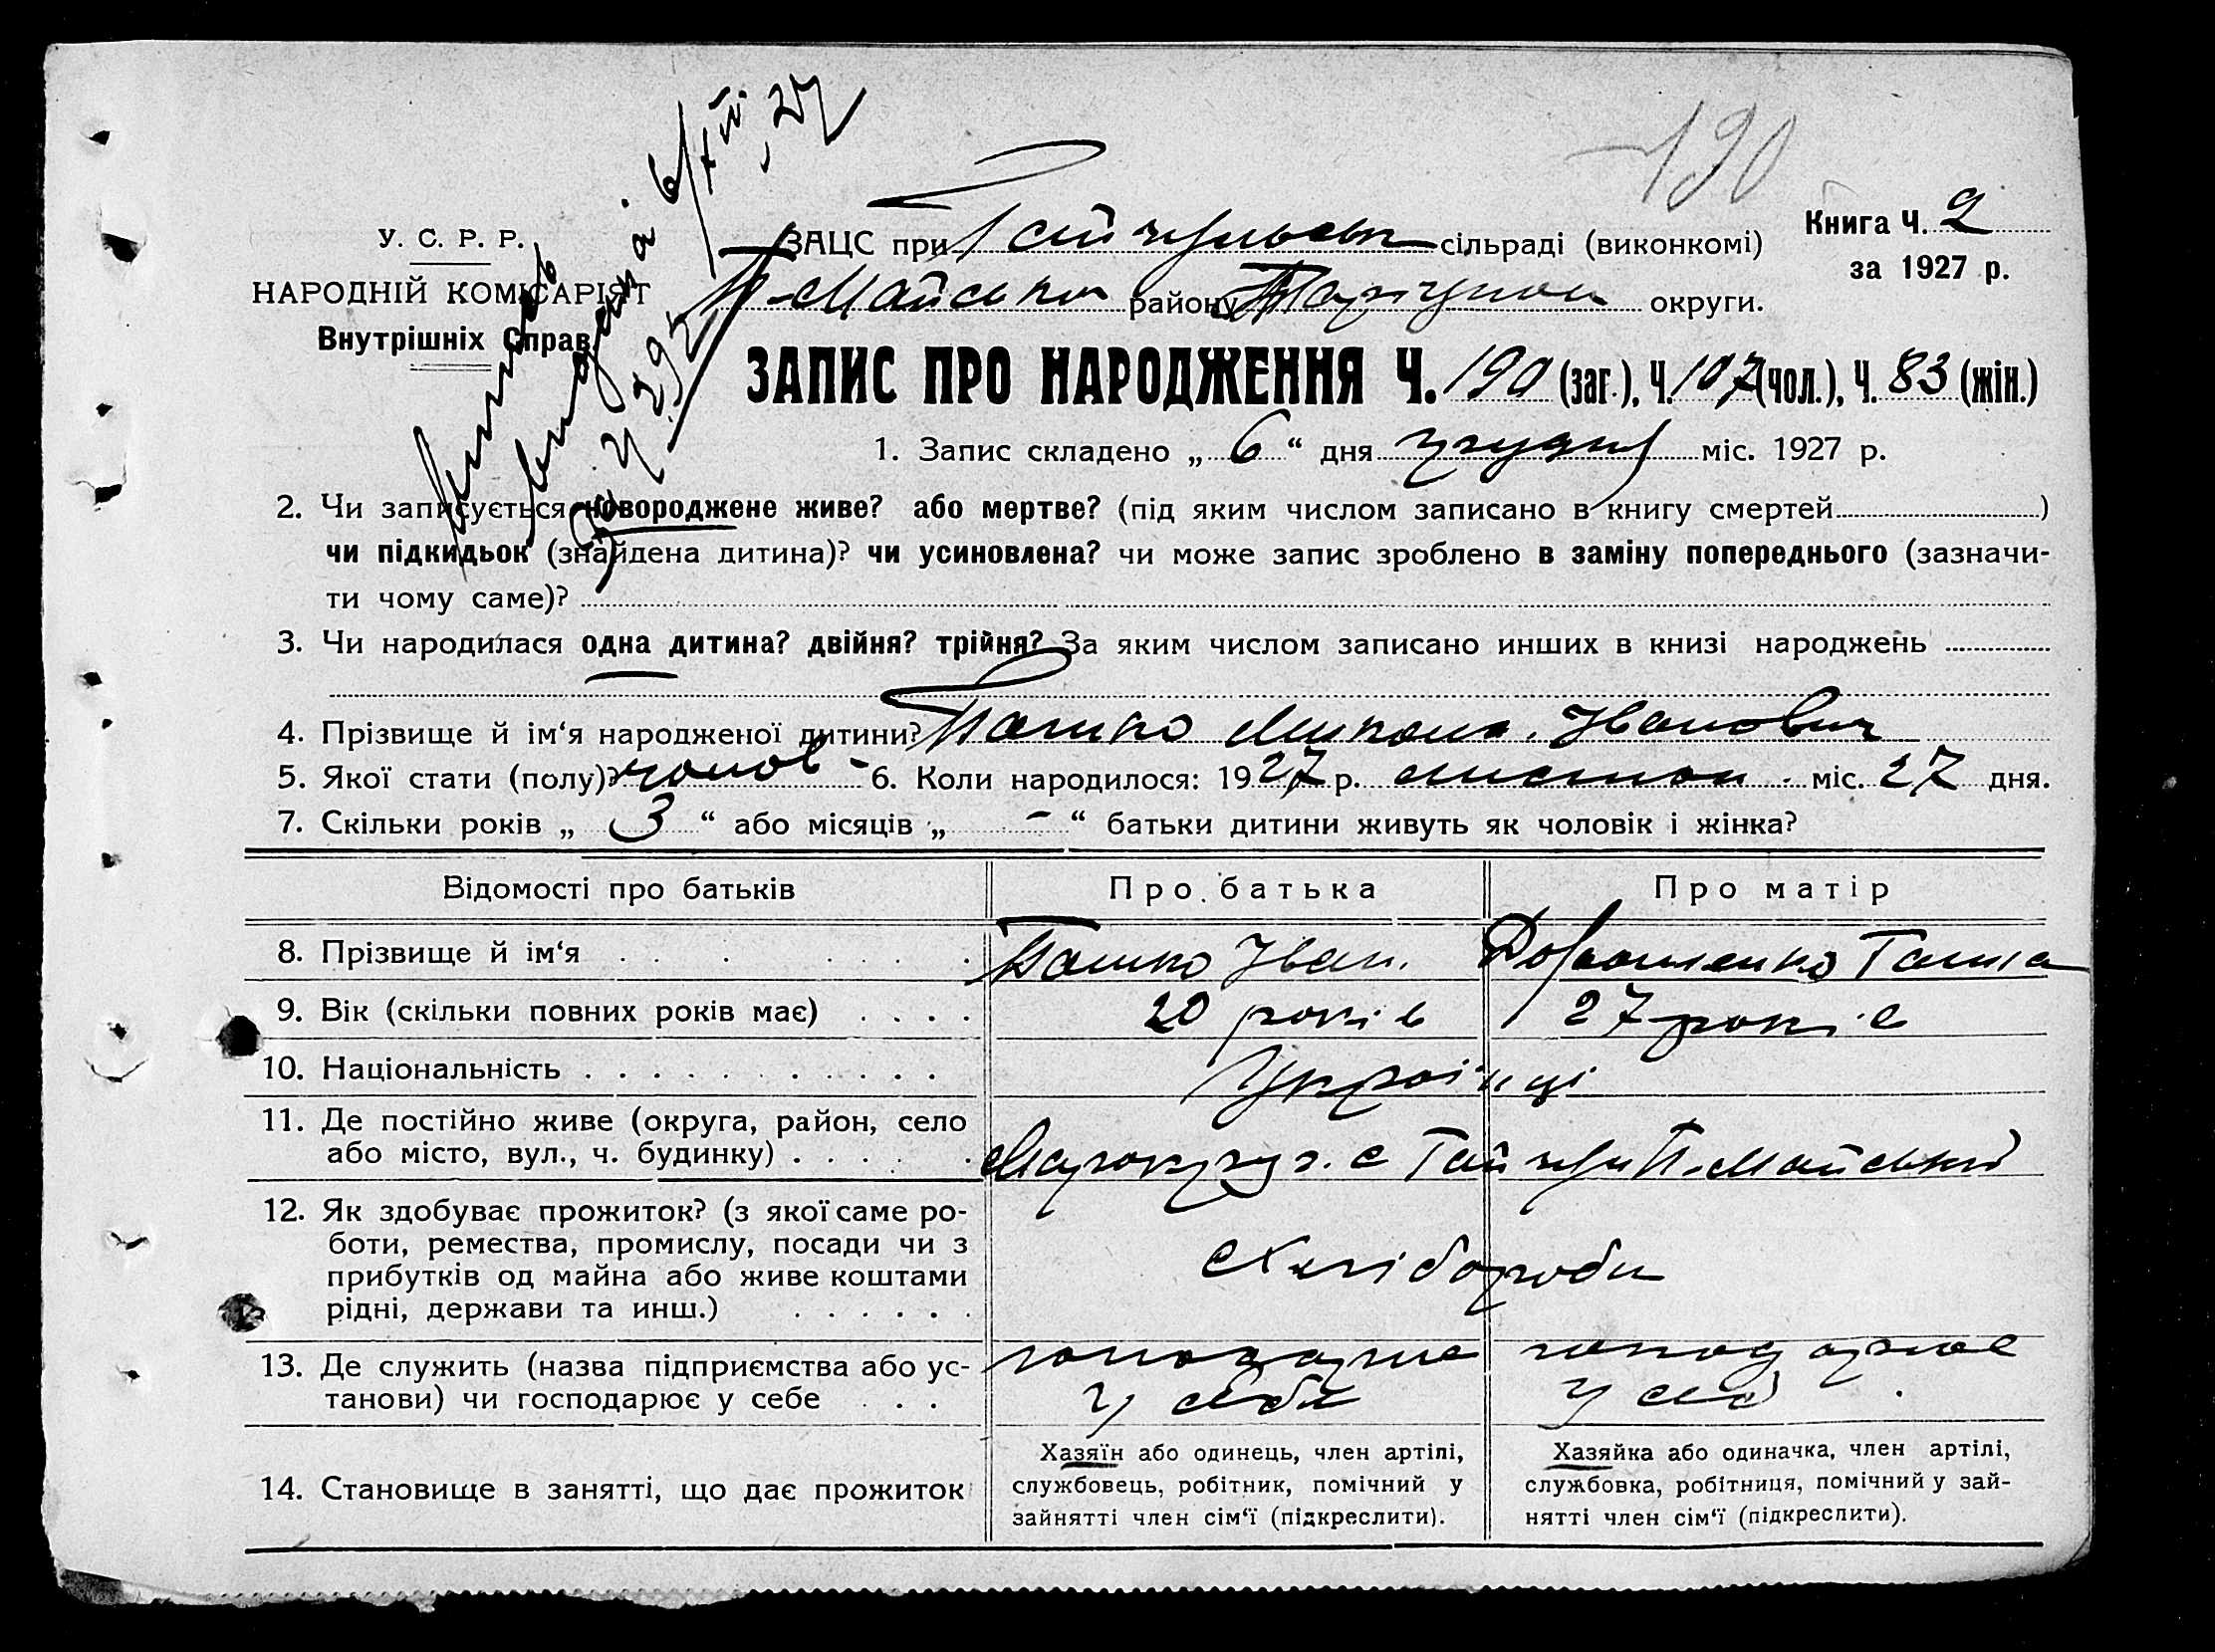 190
У. С. Р. Р.
НАРОДНІЙ КОМІСАРІЯТ
Внутрішніх Справ
виписъ
видана 6/XII - 27
Ч. 292
ЗАЦС при Гайчульськ сільраді (виконкомі)
П-Майськ району Маріупол округи.
Книга Ч. 2
за 1927 р.
ЗАПИС ПРО НАРОДЖЕННЯ Ч. 190 (заг.), Ч. 107 (чол.), Ч. 83 (жін.)
1. Запис складено „ 6 “ дня грудня міс. 1927 р.
2. Чи записується новороджене живе? або мертве? (під яким числом записано в книгу смертей )
чи підкидьок (знайдена дитина)? чи усиновлена? чи може запис зроблено в заміну попереднього (зазначи-
ти чому саме)?
3. Чи народилася одна дитина? двійня? трійня? За яким числом записано инших в книзі народжень
4. Прізвище й ім‘я народженої дитини? Микола Іванович
5. Якої стати (полу)? чолов - 6. Коли народилося: 1927 р. листопа міс. 27 дня.
7. Скільки років „ 3 “ або місяців „ - “ батьки дитини живуть як чоловік і жінка?
Відомості про батьків Про батька Про матір
8. Прізвище й ім‘я Іван. Дорошенко Ганна
9. Вік (скільки повних років має) 20 років 27 років
10. Національність Українці
11. Де постійно живе (округа, район, село
або місто, вул., ч. будинку) с Гайчул П-Майський
12. Як здобуває прожиток? (з якої саме ро-
боти, ремества, промислу, посади чи з
прибутків од майна або живе коштами
рідні, держави та инш.) Хлібороби
13. Де служить (назва підприємства або ус- господарює господарює
танови) чи господарює у себе у себе у себ
14. Становище в занятті, що дає прожиток
Хазяїн або одинець, член артілі,
службовець, робітник, помічний у
зайнятті член сім‘ї (підкреслити).
Хазяйка або одиначка, член артілі,
службовка, робітниця, помічний у зай-
нятті член сім‘ї (підкреслити).